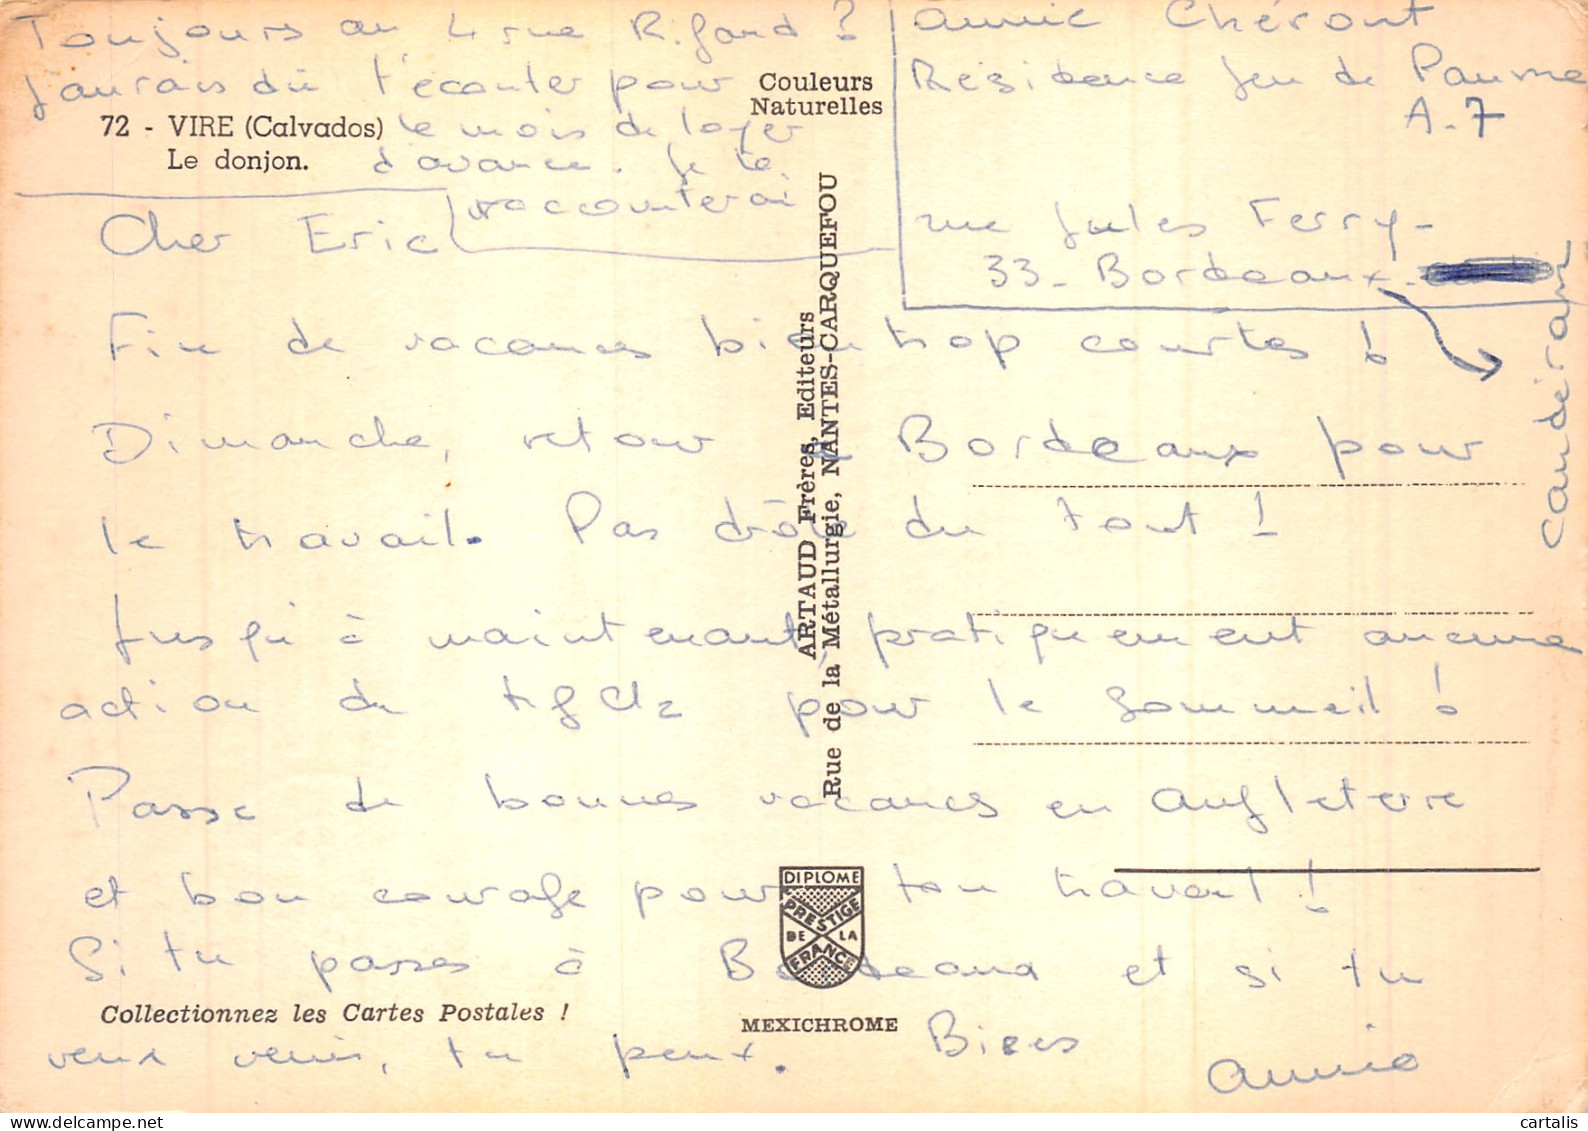 Toujours au 4 rue R. Gard ?
J'aurais dû t'écouter pour
le mois de loyer
d'avance. Je te
raconterai
Annie Chéront
Résidence Jeu de Paume
A.7
rue Jules Ferry -
33 - Bordeaux -
Caudéran
Couleurs
Naturelles
72 - VIRE (Calvados)
Le donjon.
Cher Eric
Fin de vacances bien trop courtes !
Dimanche, retour à Bordeaux pour
le travail. Pas drôle du tout !
Jusqu'à maintenant, pratiquement aucune
action du pour le sommeil !
Passe de bonnes vacances en Angleterre
et bon courage pour ton travail !
Si tu passes à Bordeaux et si tu
veux venir, tu peux. Bises
Annie
ARTAUD Frères, Editeurs
Rue de la Métallurgie, NANTES-CARQUEFOU
DIPLOME
PRESTIGE
DE LA
FRANCE
Collectionnez les Cartes Postales !
MEXICHROME
cartalis